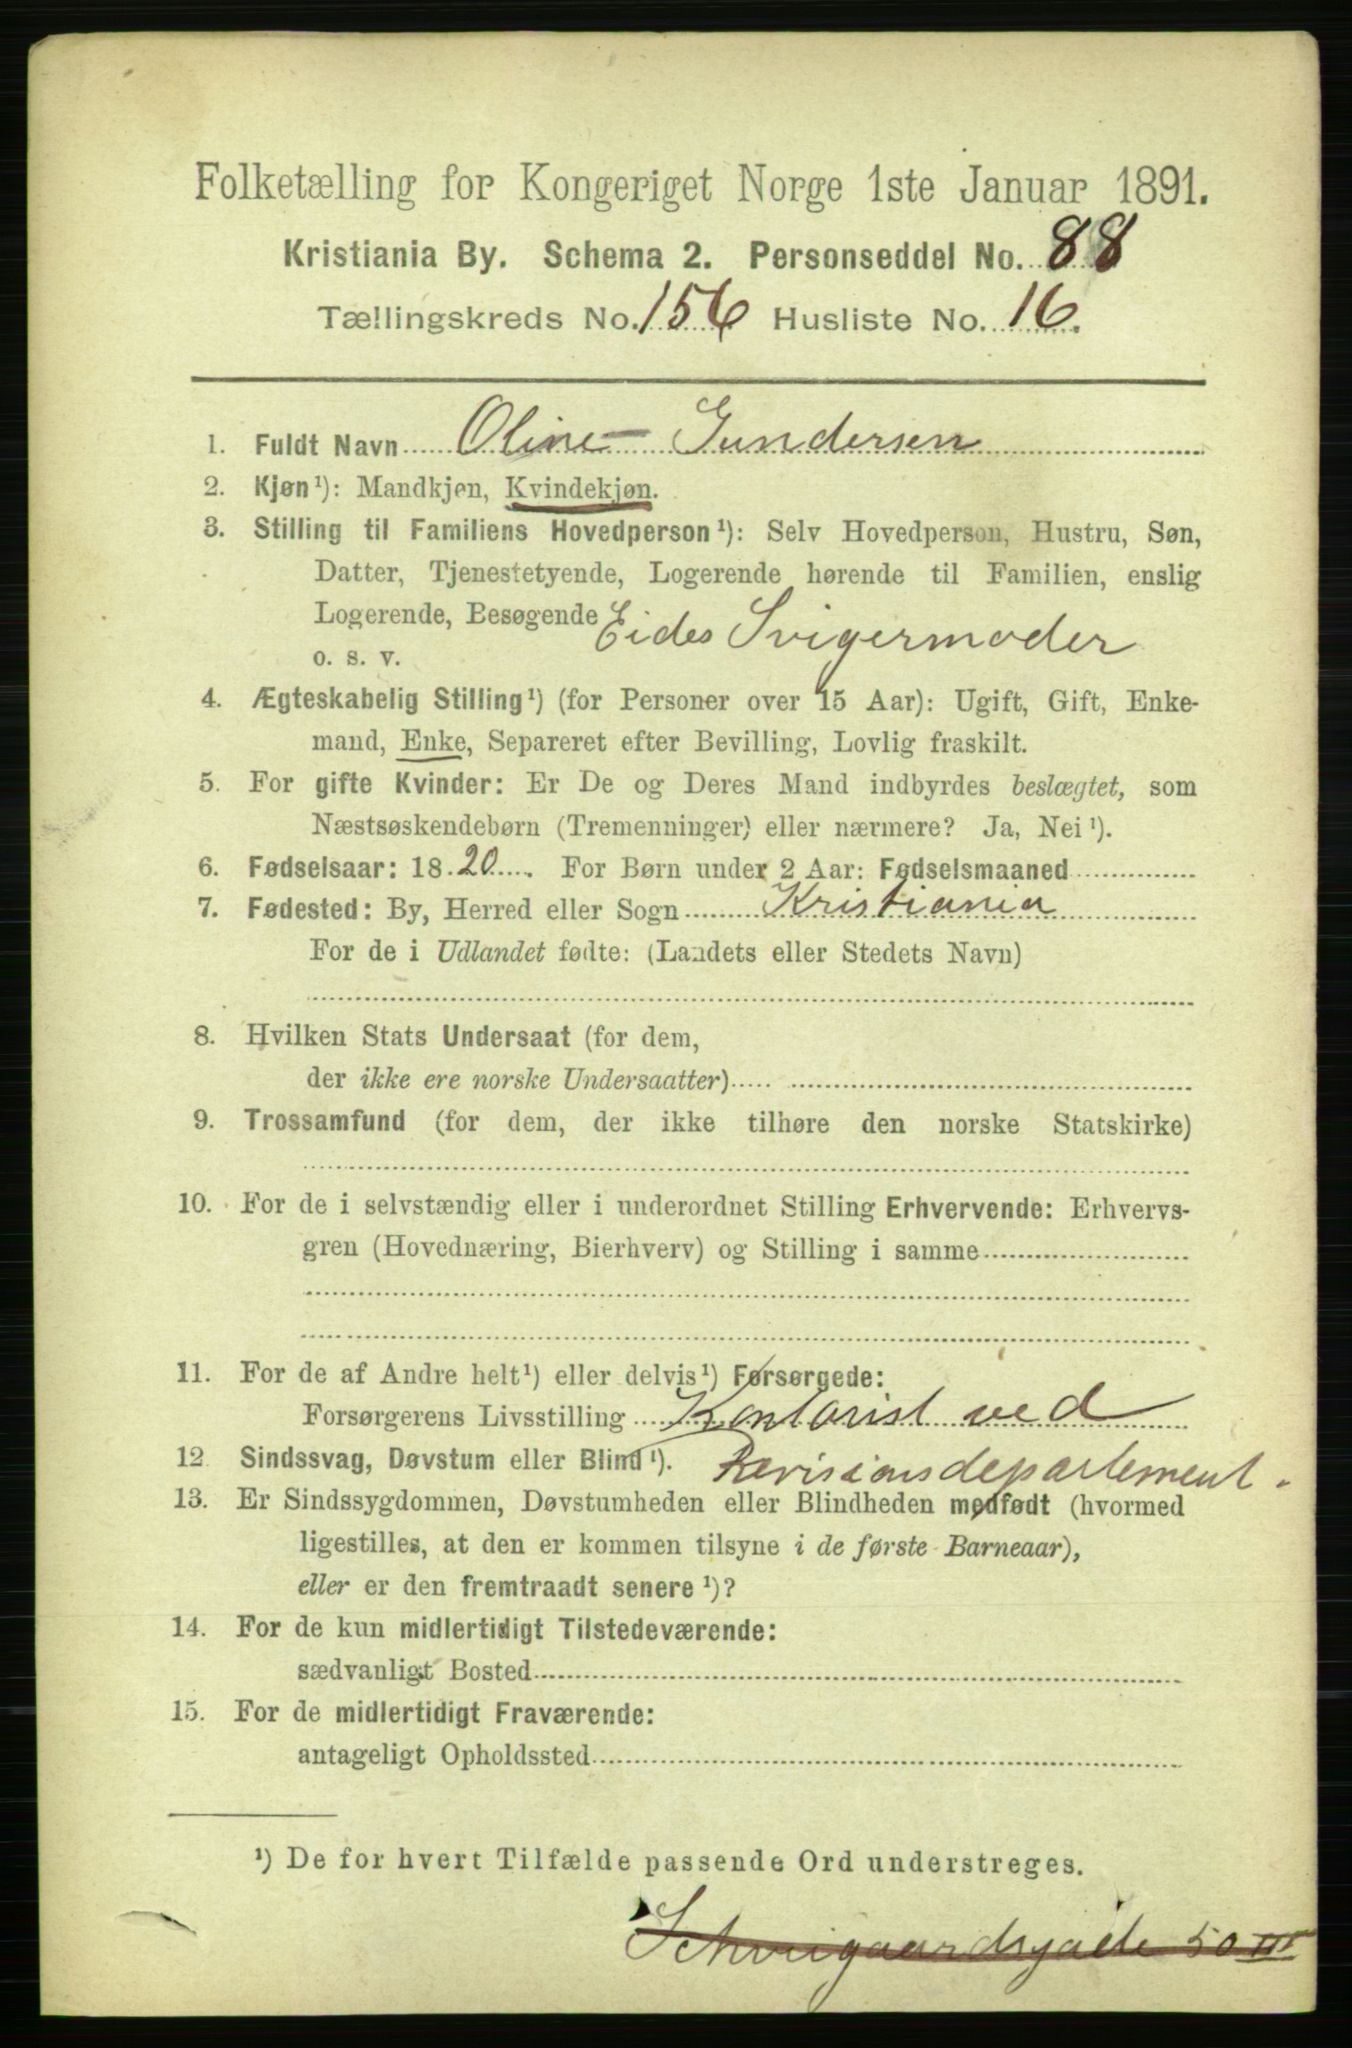 Folketælling for Kongeriget Norge 1ste Januar 1891.
Kristiania By. Schema 2. Personseddel No. 88
Tællingskreds No. 156 Husliste No. 16.
1. Fuldt Navn Oline Gundersen
2. Kjøn¹): Mandkjøn, Kvindekjøn.
3. Stilling til Familiens Hovedperson¹): Selv Hovedperson, Hustru, Søn,
Datter, Tjenestetyende, Logerende hørende til Familien, enslig
Logerende, Besøgende Eides Svigermoder
o. s. v.
4. Ægteskabelig Stilling¹) (for Personer over 15 Aar): Ugift, Gift, Enke-
mand, Enke, Separeret efter Bevilling, Lovlig fraskilt.
5. For gifte Kvinder: Er De og Deres Mand indbyrdes beslægtet, som
Næstsøskendebørn (Tremenninger) eller nærmere? Ja, Nei¹).
6. Fødselsaar: 1820. For Børn under 2 Aar: Fødselsmaaned
7. Fødested: By, Herred eller Sogn Kristiania
For de i Udlandet fødte: (Landets eller Stedets Navn)
8. Hvilken Stats Undersaat (for dem,
der ikke ere norske Undersaatter)
9. Trossamfund (for dem, der ikke tilhøre den norske Statskirke)
10. For de i selvstændig eller i underordnet Stilling Erhvervende: Erhvervs-
gren (Hovednæring, Bierhverv) og Stilling i samme
11. For de af Andre helt¹) eller delvis¹) Forsørgede:
Forsørgerens Livsstilling Kontorist ved
12 Sindssvag, Døvstum eller Blind¹). Revisionsdepartement.
13. Er Sindssygdommen, Døvstumheden eller Blindheden medfødt (hvormed
ligestilles, at den er kommen tilsyne i de første Barneaar),
eller er den fremtraadt senere¹)?
14. For de kun midlertidigt Tilstedeværende:
sædvanligt Bosted
15. For de midlertidigt Fraværende:
antageligt Opholdssted
¹) De for hvert Tilfælde passende Ord understreges.
Schweigaardsgade 50 III